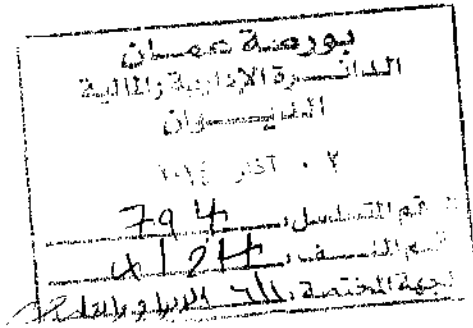 بورصة عمان
الدائرة الإدارية والمالية
الديوان
٢٠ آذار ٢٠١٤
الرقم المتسلسل: 794
رقم الملف:
الجهة المختصة: